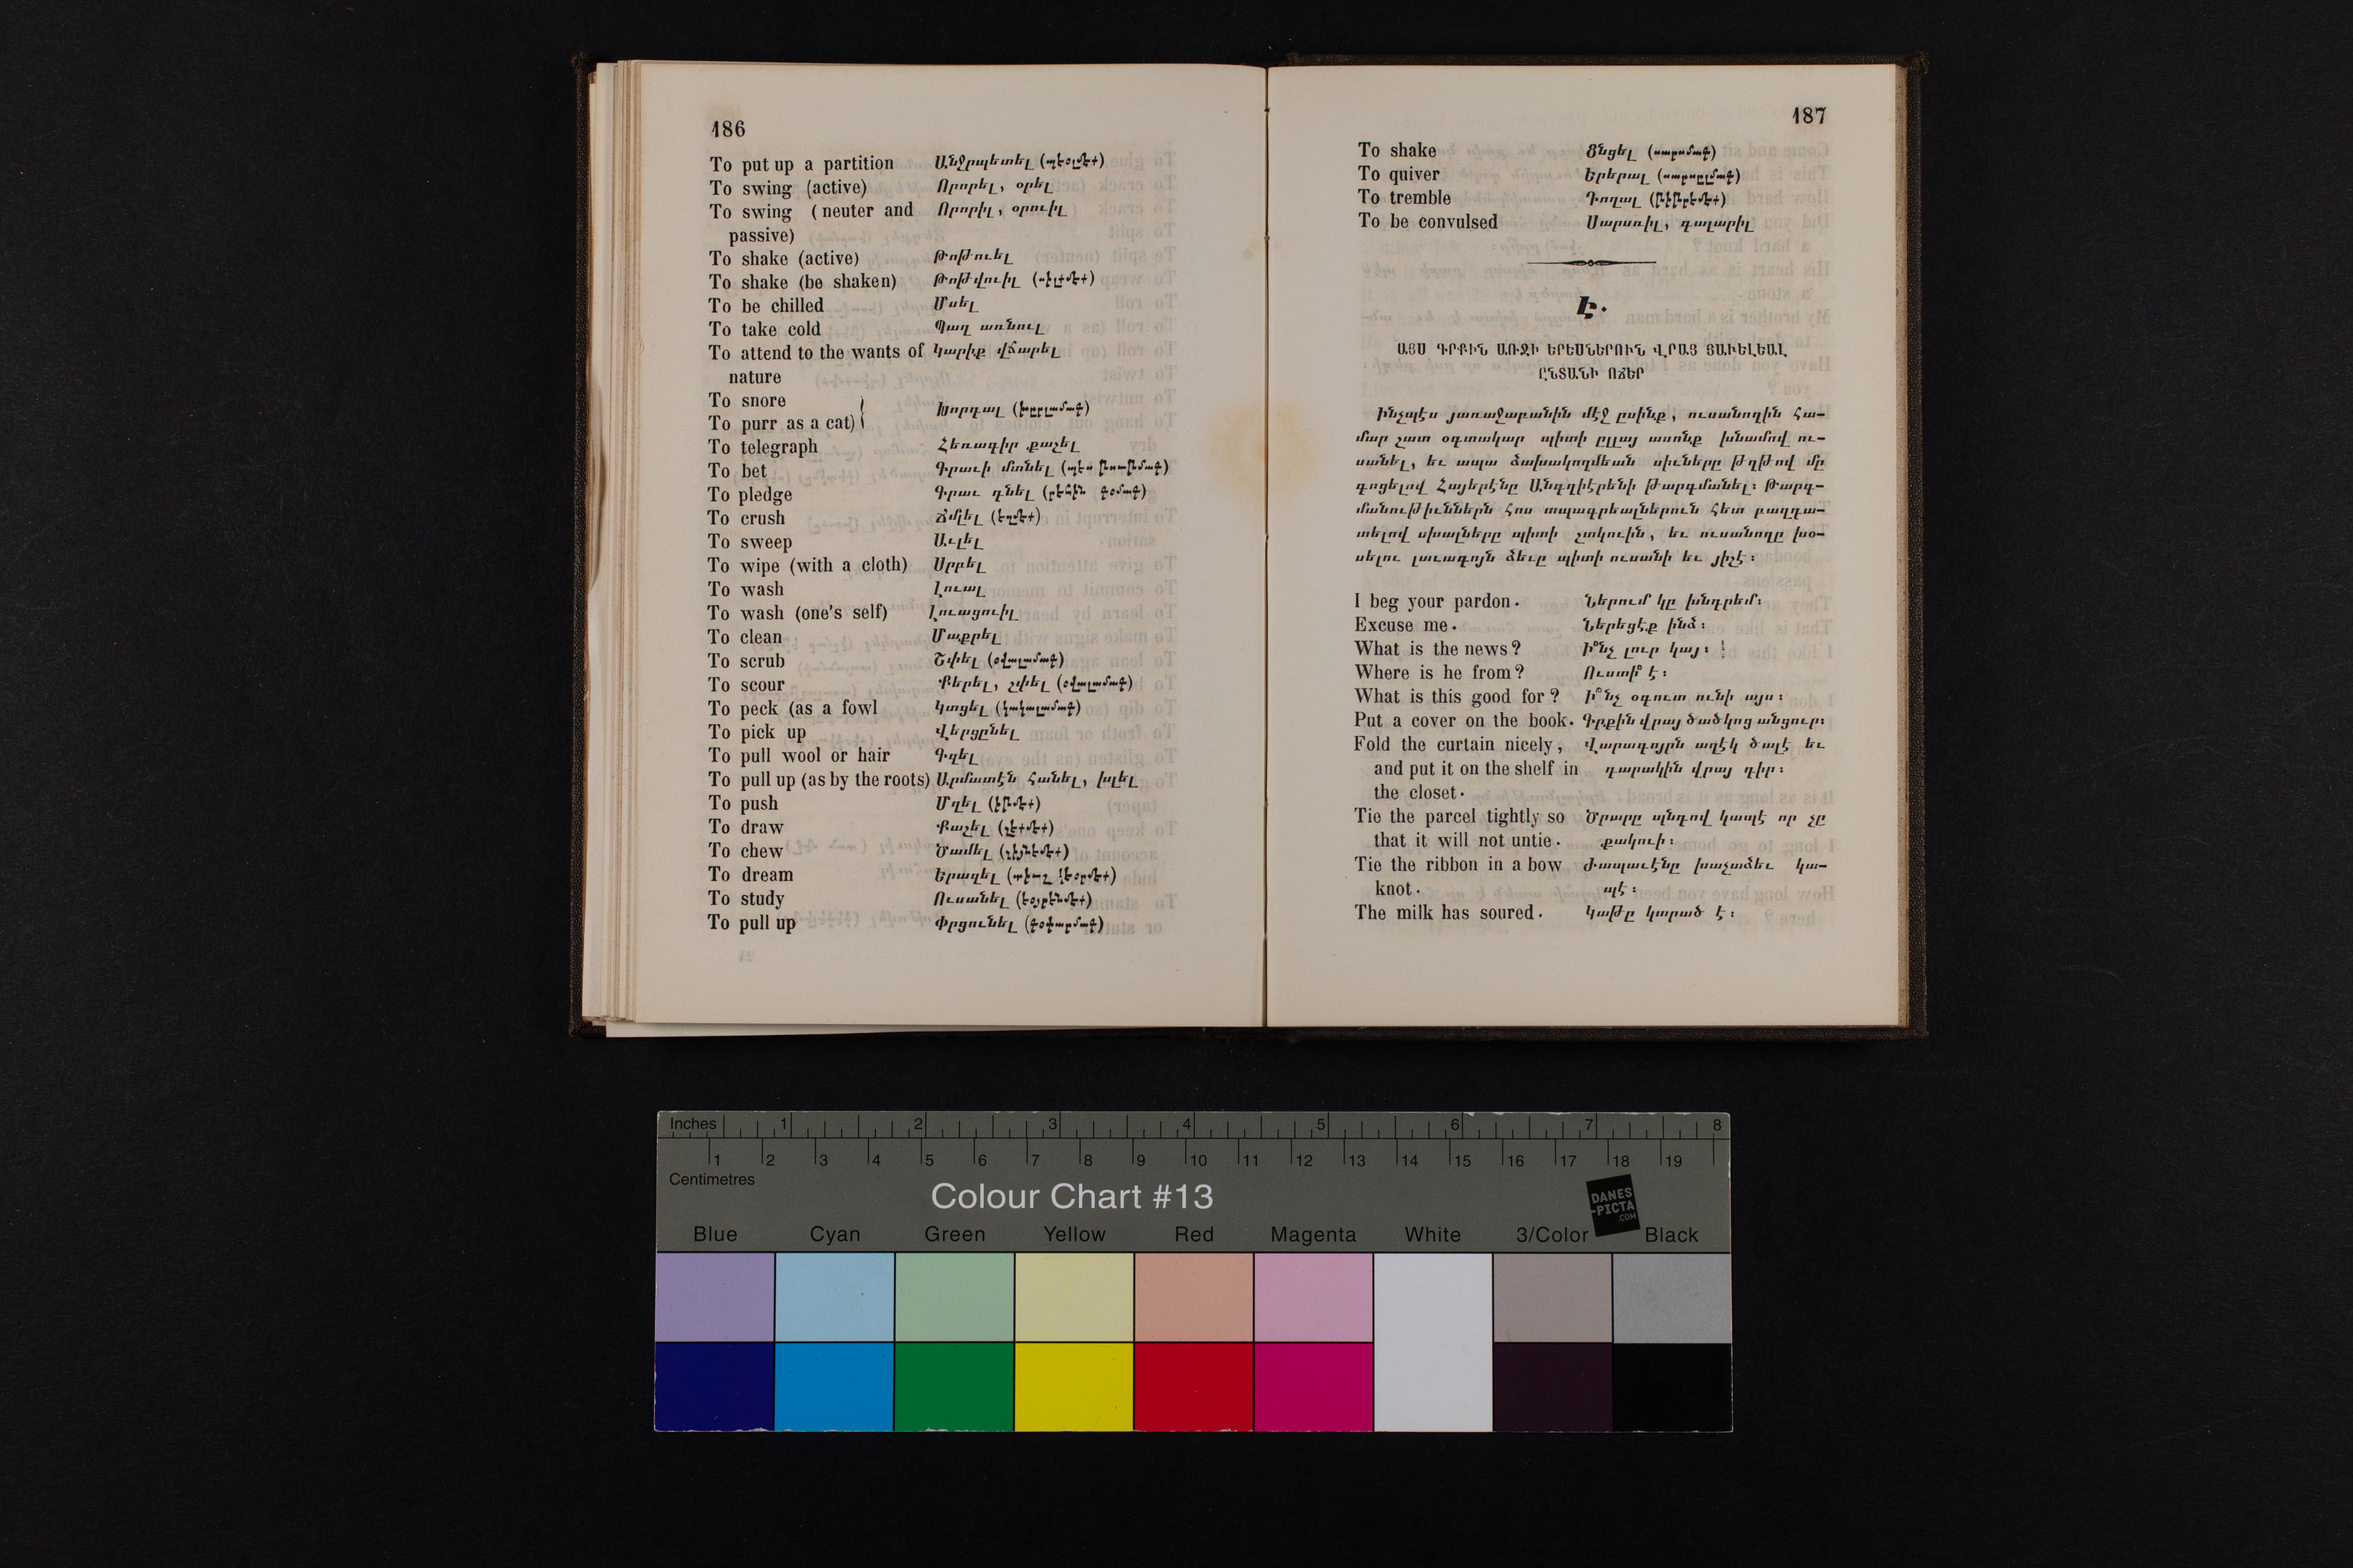 186
To put up a partition Անջրպետել (պէօլմէք)
To swing (active) Որորել, օրել
To swing (neuter and Որորիլ, օրուիլ
passive)
To shake (active) Թոթուել
To shake (be shaken) Թոթվուիլ (սիլքմէք)
To be chilled Մսել
To take cold Պաղ առնուլ
To attend to the wants of Կարիք վճարել
nature
To snore
To purr as a cat) Խորդալ (խըրլամագ)
To telegraph Հեռագիր քաշել
To bet Գրաւի մտնել
To pledge Գրաւ դնել (րէհին գօմագ)
To crush Ճմլել (էզմէք)
To sweep Աւլել
To wipe (with a cloth) Սրբել
To wash Լուալ
To wash (one's self) Լուացուիլ
To clean Մաքրել
To scrub Շփել (օվալամագ)
To scour Քերել, շփել (օվալամագ)
To peck (as a fowl Կտցել (կակալամագ)
To pick up Վերցընել
To pull wool or hair Գզել
To pull up (as by the roots) Արմատէն հանել, խլել
To push Մղել (իթմէք)
To draw Քաշել (չէքմէք)
To chew Ծամել (չէյնէմէք)
To dream Երազել
To study Ուսանել (էօյրէնմէք)
To pull up Փրցունել (գօփարմագ)
187
To shake Ցնցել (սարսմագ)
To quiver Երերալ (սարսըլմագ)
To tremble Դողալ (թիթրէմէք)
To be convulsed Սարսռիլ, գալարիլ
Է.
ԱՅՍ ԳՐՔԻՆ ԱՌՋԻ ԵՐԵՍՆԵՐՈՒՆ ՎՐԱՅ ՅԱՒԵԼԵԱԼ
ԸՆՏԱՆԻ ՈՃԵՐ
Ինչպէս յառաջաբանին մէջ ըսինք, ուսանողին հա-
մար շատ օգտակար պիտի ըլլայ ասոնք խնամով ու-
սանել, եւ ապա ձախակողմեան սիւները թղթով մը
գոցելով Հայերէնը Անգղիէրենի թարգմանել։ Թարգ-
մանութիւններն հոս տպագրեալներուն հետ բաղդա-
տելով սխալները պիտի շտկուին, եւ ուսանողը խօ-
սելու լաւագոյն ձեւը պիտի ուսանի եւ յիշէ։
I beg your pardon. Ներում կը խնդրեմ։
Excuse me. Ներեցէք ինձ։
What is the news? Ի՞նչ լուր կայ։
Where is he from? Ուստի՞ է։
What is this good for? Ի՞նչ օգուտ ունի այս։
Put a cover on the book. Գրքին վրայ ծածկոց անցուր։
Fold the curtain nicely, Վարագոյրն աղէկ ծալէ եւ
and put it on the shelf in դարակին վրայ դիր։
the closet.
Tie the parcel tightly so Ծրարը պնդով կապէ որ չը
that it will not untie. քակուի։
Tie the ribbon in a bow Ժապաւէնը խաչաձեւ կա-
knot. պէ։
The milk has soured. Կաթը կտրած է։
Inches 1 2 3 4 5 6 7 8
1 2 3 4 5 6 7 8 9 10 11 12 13 14 15 16 17 18 19
Centimetres
Colour Chart #13
DANES
-PICTA
.COM
Blue Cyan Green Yellow Red Magenta White 3/Color Black